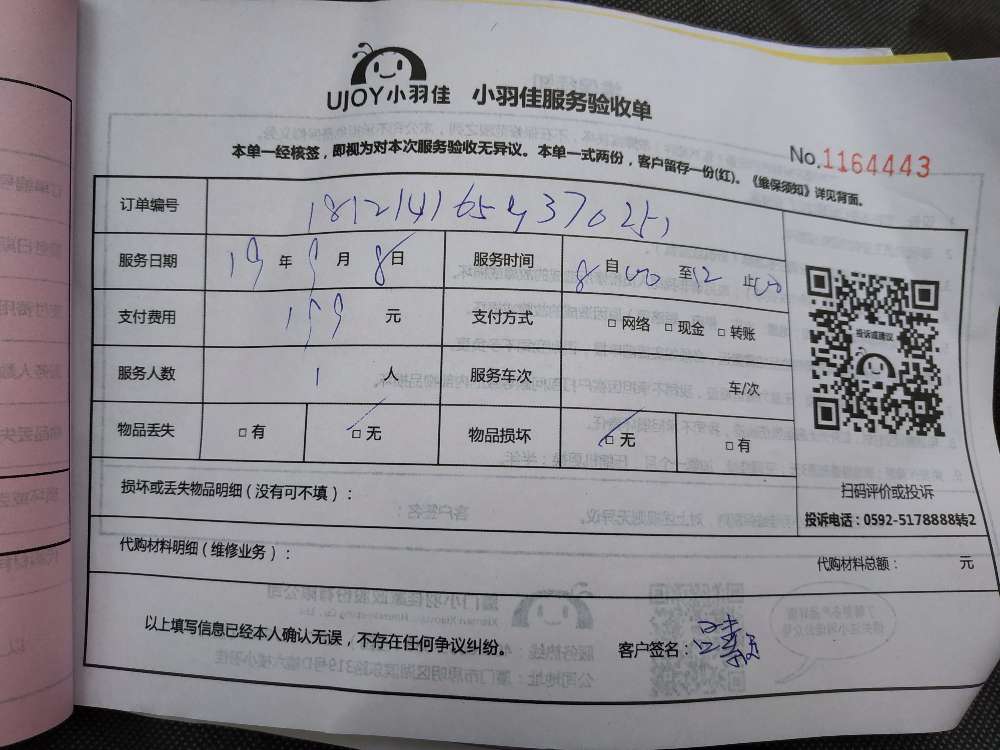 UJOY小羽佳 小羽佳服务验收单
本单一经核签，即视为对本次服务验收无异议。本单一式两份，客户留存一份(红)。《维保须知》详见背面。
No.1164443
订单编号
服务日期 19 年 9 月 8 日 服务时间 8 自 00 至 12 止 00
支付费用 199 元 支付方式 □ 网络 □ 现金 □ 转账
投诉或建议
服务人数 1 人 服务车次 车/次
物品丢失 □ 有 □ 无 物品损坏 □ 无 □ 有
扫码评价或投诉
损坏或丢失物品明细（没有可不填）：
投诉电话：0592-5178888转2
代购材料明细（维修业务）： 代购材料总额： 元
以上填写信息已经本人确认无误，不存在任何争议纠纷。 客户签名：